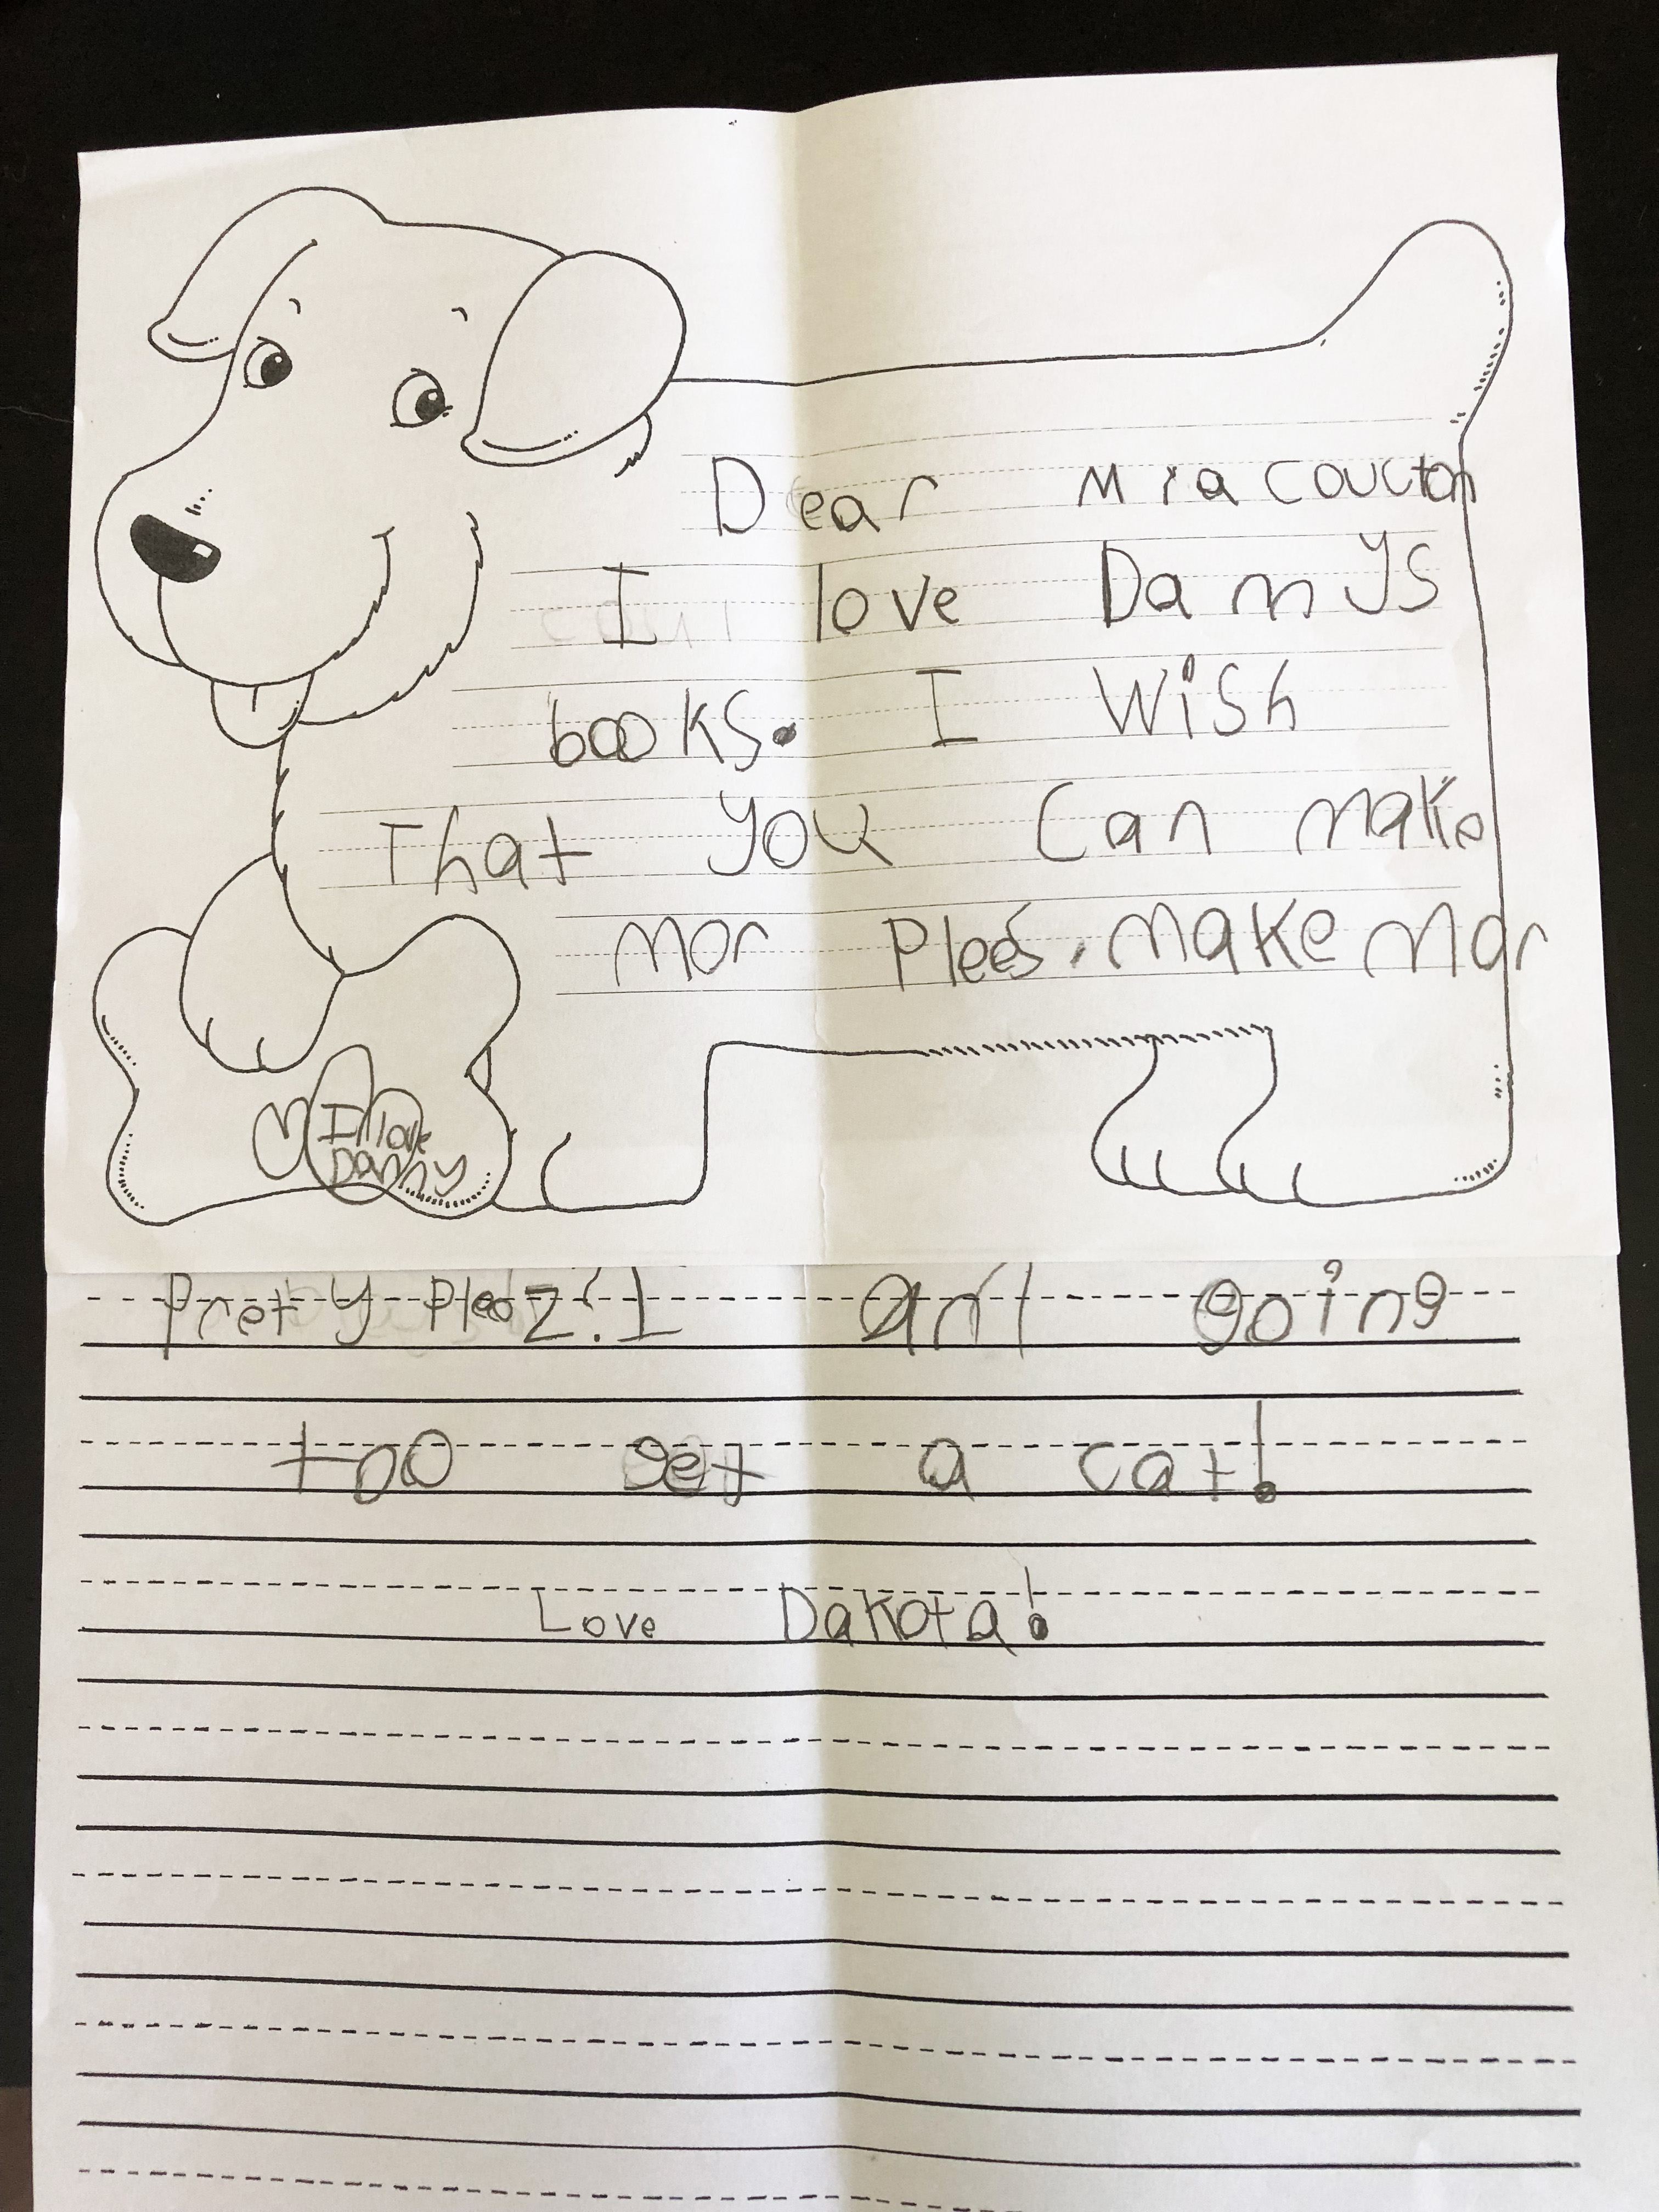 Dear Mia Coucton
I love Dannys
books. I Wish
That you Can make
mor Plees, make mor
I love
Danny
Prety Pleez! I am going
too get a cat!
Love Dakota!